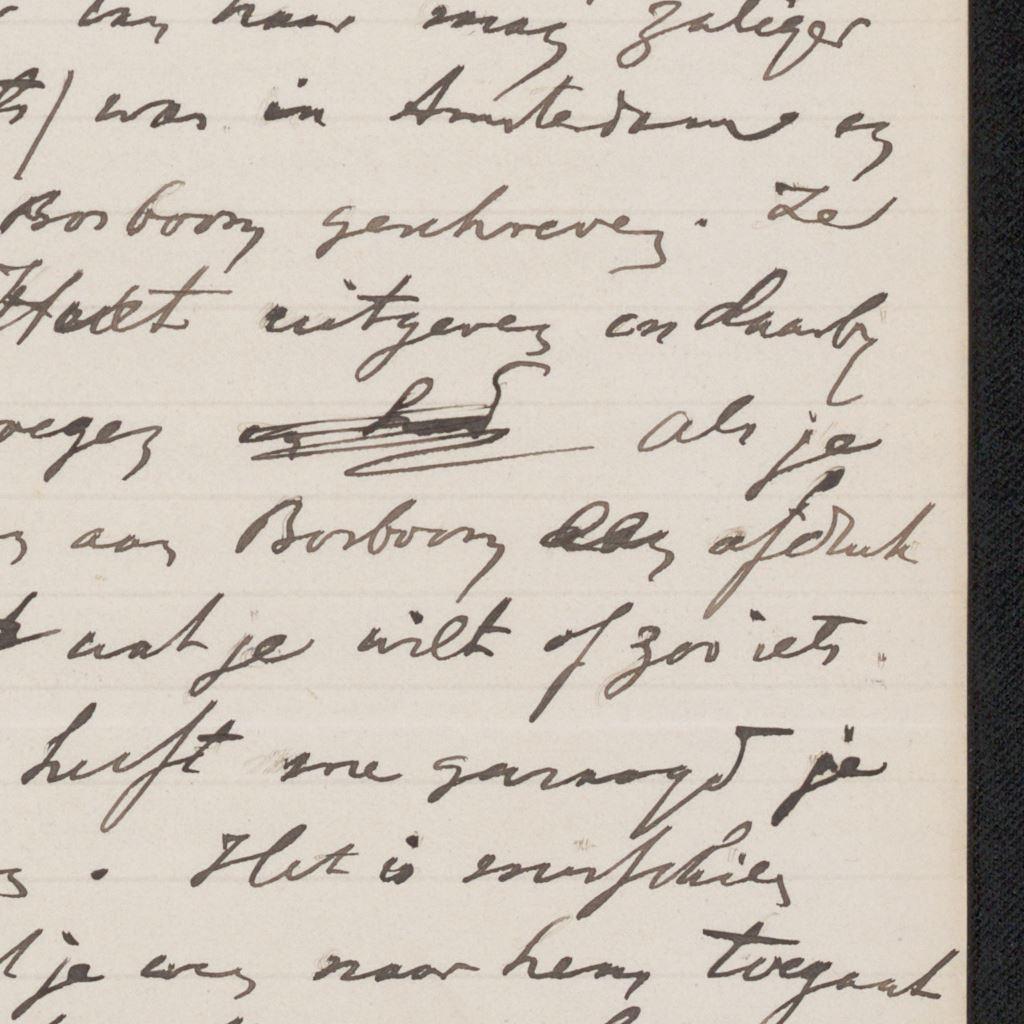 van haar man zaliger
was in Amsterdam en
Bosboom geschreven. Ze
Huet uitgeven en daarby
voegen en had Als je
aan Bosboom een afdruk
wat je wilt of zoo iets.
heeft me gevraagd je
. Het is misschien
je eens naar hem toegaat